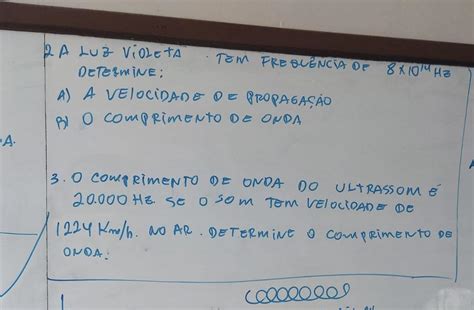 2 A LUZ VIOLETA . TEM FREQUÊNCIA DE 8x10¹⁴ Hz
DETERMINE:
A) A VELOCIDADE DE PROPAGAÇÃO
B) O COMPRIMENTO DE ONDA
A.
3. O COMPRIMENTO DE ONDA DO ULTRASSOM É
20.000 Hz SE O SOM TEM VELOCIDADE DE
1224 Km/h. NO AR. DETERMINE O COMPRIMENTO DE
ONDA.